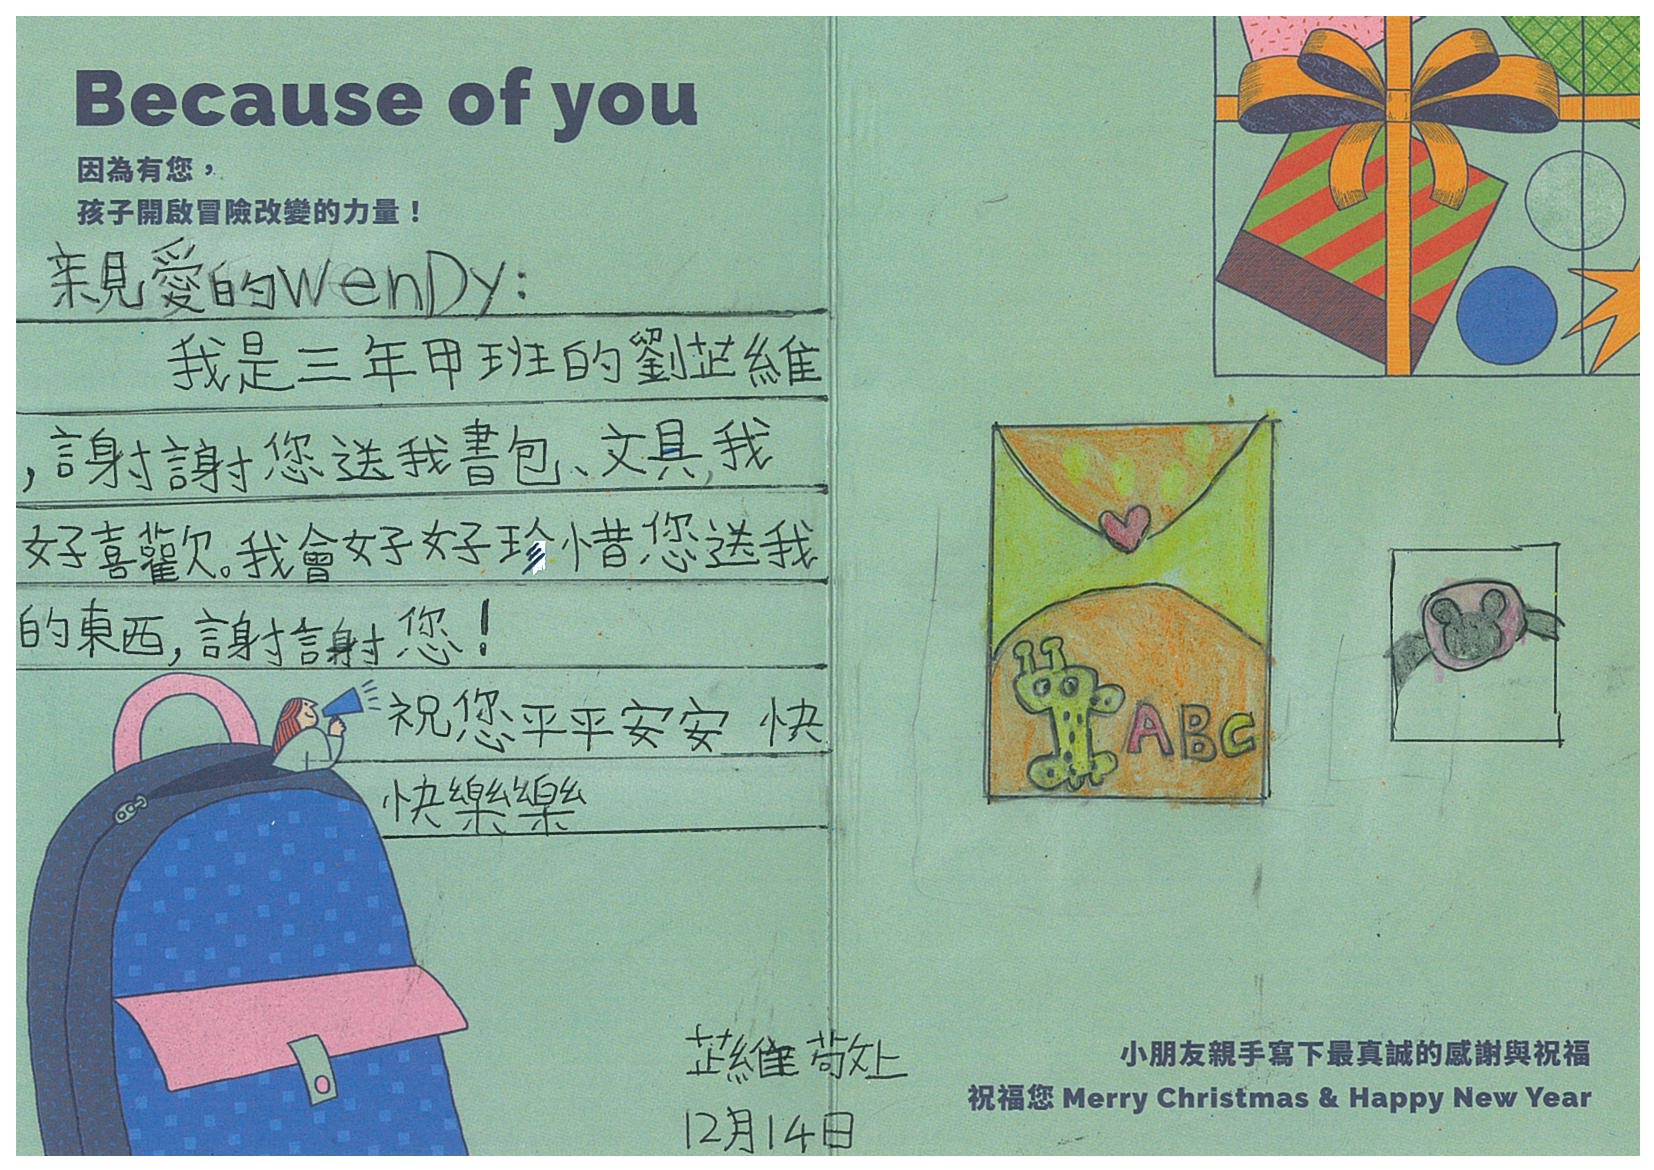 Because of you
因為有您，
孩子開啟冒險改變的力量！
親愛的WenDy:
我是三年甲班的劉芷維
,謝謝您送我書包、文具,我
好喜歡。我會好好珍惜您送我
的東西,謝謝您!
祝您平平安安 快
快樂樂
ABC
芷維 敬上
12月14日
小朋友親手寫下最真誠的感謝與祝福
祝福您 Merry Christmas & Happy New Year